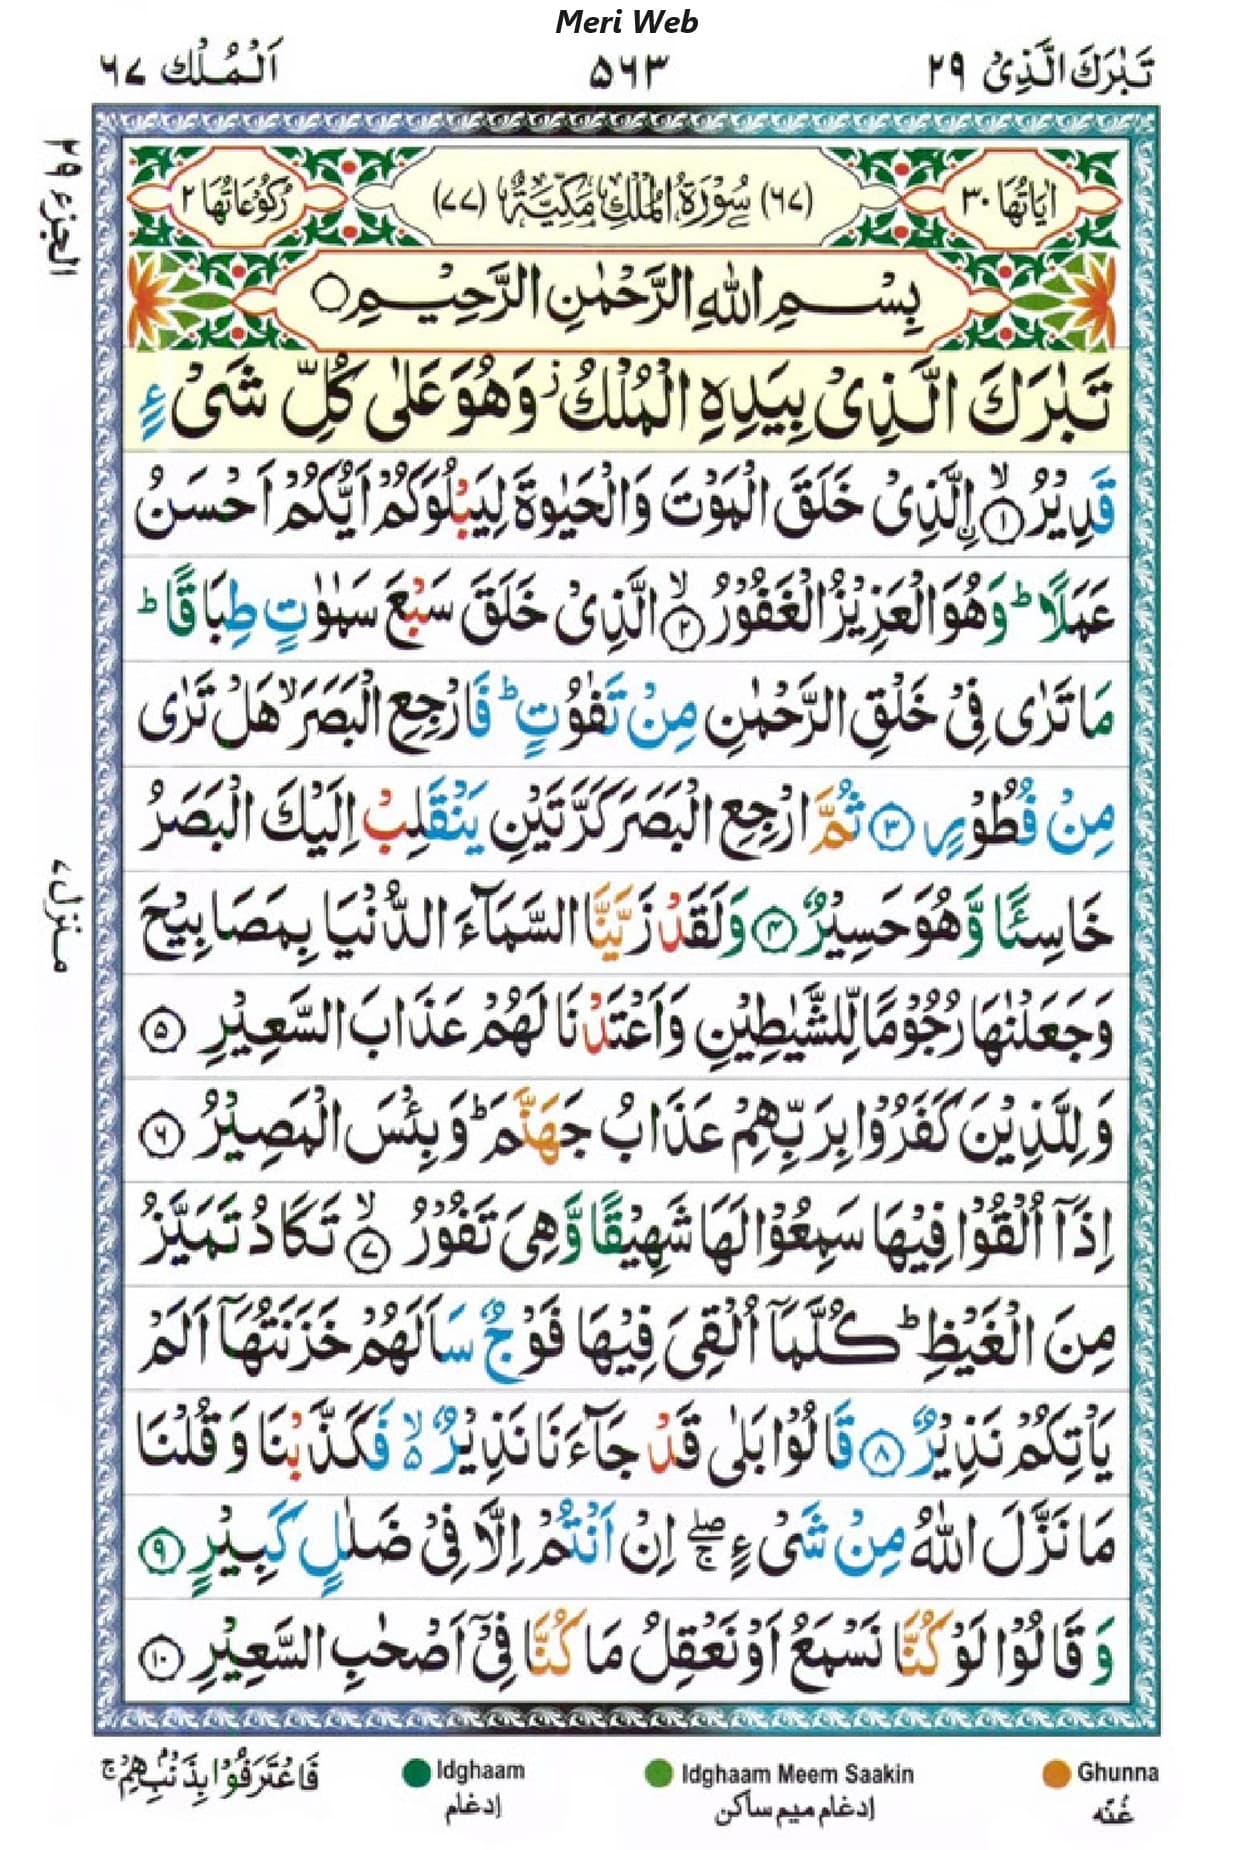 Meri Web
تَبٰرَكَ الَّذِیْ ٢٩
٥٦٣
اَلْمُلْك ٦٧
اٰیَاتُهَا ٣٠
(٦٧) سُوْرَةُ الْمُلْكِ مَكِّیَّةٌ (٧٧)
رُكُوْعَاتُهَا ٢
بِسْمِ اللّٰهِ الرَّحْمٰنِ الرَّحِیْمِ
تَبٰرَكَ الَّذِیْ بِیَدِهِ الْمُلْكُ ز وَهُوَ عَلٰی كُلِّ شَیْءٍ
قَدِیْرُ ۙ ١ اِۨلَّذِیْ خَلَقَ الْمَوْتَ وَالْحَیٰوةَ لِیَبْلُوَكُمْ اَیُّكُمْ اَحْسَنُ
عَمَلًا ؕ وَهُوَ الْعَزِیْزُ الْغَفُوْرُ ۙ ٢ الَّذِیْ خَلَقَ سَبْعَ سَمٰوٰتٍ طِبَاقًا ؕ
مَا تَرٰی فِیْ خَلْقِ الرَّحْمٰنِ مِنْ تَفٰوُتٍ ؕ فَارْجِعِ الْبَصَرَ ۙ هَلْ تَرٰی
مِنْ فُطُوْرٍ ٣ ثُمَّ ارْجِعِ الْبَصَرَ كَرَّتَیْنِ یَنْقَلِبْ اِلَیْكَ الْبَصَرُ
خَاسِئًا وَّهُوَ حَسِیْرٌ ٤ وَلَقَدْ زَیَّنَّا السَّمَآءَ الدُّنْیَا بِمَصَابِیْحَ
وَجَعَلْنٰهَا رُجُوْمًا لِّلشَّیٰطِیْنِ وَاَعْتَدْنَا لَهُمْ عَذَابَ السَّعِیْرِ ٥
وَلِلَّذِیْنَ كَفَرُوْا بِرَبِّهِمْ عَذَابُ جَهَنَّمَ ؕ وَبِئْسَ الْمَصِیْرُ ٦
اِذَاۤ اُلْقُوْا فِیْهَا سَمِعُوْا لَهَا شَهِیْقًا وَّهِیَ تَفُوْرُ ۙ ٧ تَكَادُ تَمَیَّزُ
مِنَ الْغَیْظِ ؕ كُلَّمَاۤ اُلْقِیَ فِیْهَا فَوْجٌ سَاَلَهُمْ خَزَنَتُهَاۤ اَلَمْ
یَاْتِكُمْ نَذِیْرٌ ٨ قَالُوْا بَلٰی قَدْ جَآءَنَا نَذِیْرٌ ۙ٥ فَكَذَّبْنَا وَقُلْنَا
مَا نَزَّلَ اللّٰهُ مِنْ شَیْءٍ ۖۚ اِنْ اَنْتُمْ اِلَّا فِیْ ضَلٰلٍ كَبِیْرٍ ٩
وَقَالُوْا لَوْ كُنَّا نَسْمَعُ اَوْ نَعْقِلُ مَا كُنَّا فِیْۤ اَصْحٰبِ السَّعِیْرِ ١٠
الجزء ٢٩
منزل ٧
فَاعْتَرَفُوْا بِذَنْۢبِهِمْ ۚ
Idghaam
ادغام
Idghaam Meem Saakin
ادغام میم ساكن
Ghunna
غُنّه